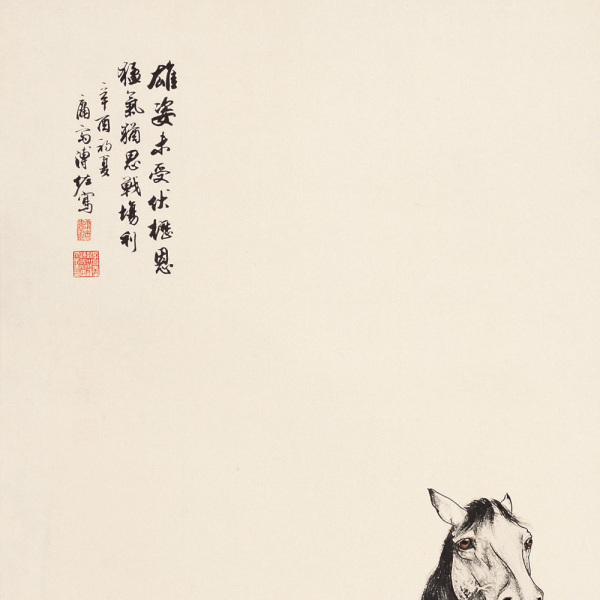 雄姿未受伏櫪恩
猛氣猶思戰場利
辛酉初夏
庸齋溥佐寫